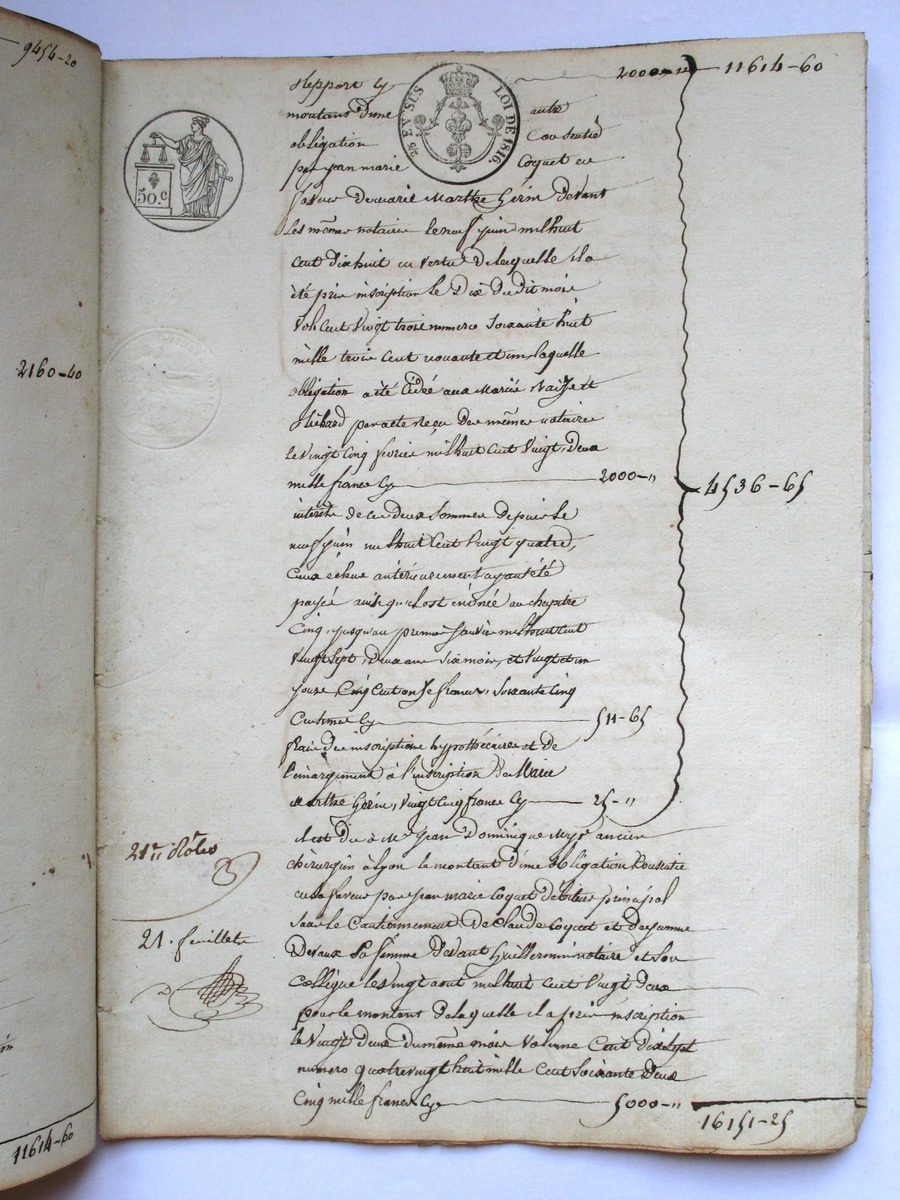 9454-20
2160-40
11614-60
25 EN SUS LOI DE 1816.
50.c
Report Cy 2000-" 11614-60
montant d'une autre
obligation consentie
par jean marie Coquet en
faveur de marie Marthe Gérin devant
les mêmes notaire le neuf juin mil huit
cent dix huit en vertu de laquelle il a
été pris inscription le Dix du dit mois
vol. Cent vingt trois numero soixante huit
mille trois cent nonante et un, laquelle
obligation a été cédée aux Mariés et
par acte reçu des mêmes notaires
le vingt cinq fevrier mil huit cent vingt, deux
mille francs Cy 2000-"
4536-65
intérêts de ces deux sommes depuis le
neuf juin mil huit Cent vingt quatre,
ceux échus antérieurement ayant été
payés ainsi qu'il est énoncé au chapitre
Cinq, jusqu'au premier janvier mil huit cent
vingt sept, deux ans six mois, et vingt et un
jours Cinq Cent onze francs, soixante Cinq
Centimes Cy 511-65
frais des inscriptions hypothécaires et de
l'émargement à l'inscription de Marie
Marthe Gérin, vingt cinq francs Cy 25-"
il est dû à Mr jean Dominique ancien
chirurgien à Lyon le montant d'une obligation consentie
en sa faveur par jean marie Coquet débiteur principal
sous le Cautionnement de Claude Coquet et de jeanne
Devaux sa femme devant Guillermin notaire et son
Collègue le vingt aout mil huit cent vingt deux
pour le montant de laquelle il a pris inscription
le vingt deux du même mois volume Cent dix sept
numero quatrevingt huit mille cent soixante deux
Cinq mille francs Cy 5000-"
16151-25
21e Roles
21. feuillet